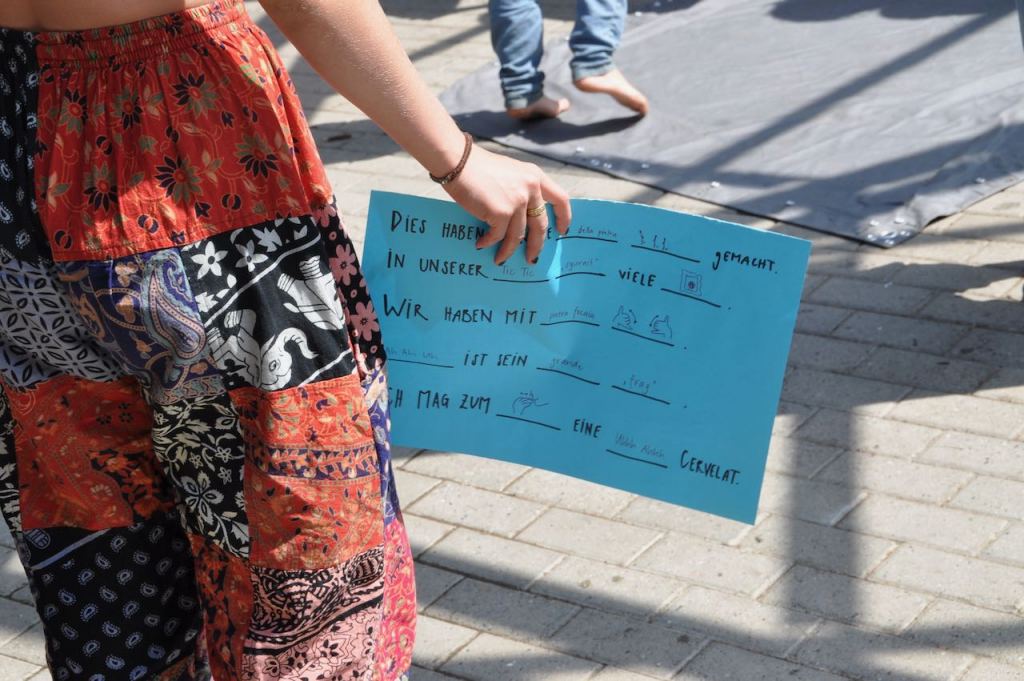 DIES HABEN della pietra gemacht.
IN UNSERER Tic Tic VIELE .
WIR HABEN MIT pietra focaia .
IST SEIN grande „frag" .
CH MAG ZUM EINE CERVELAT.